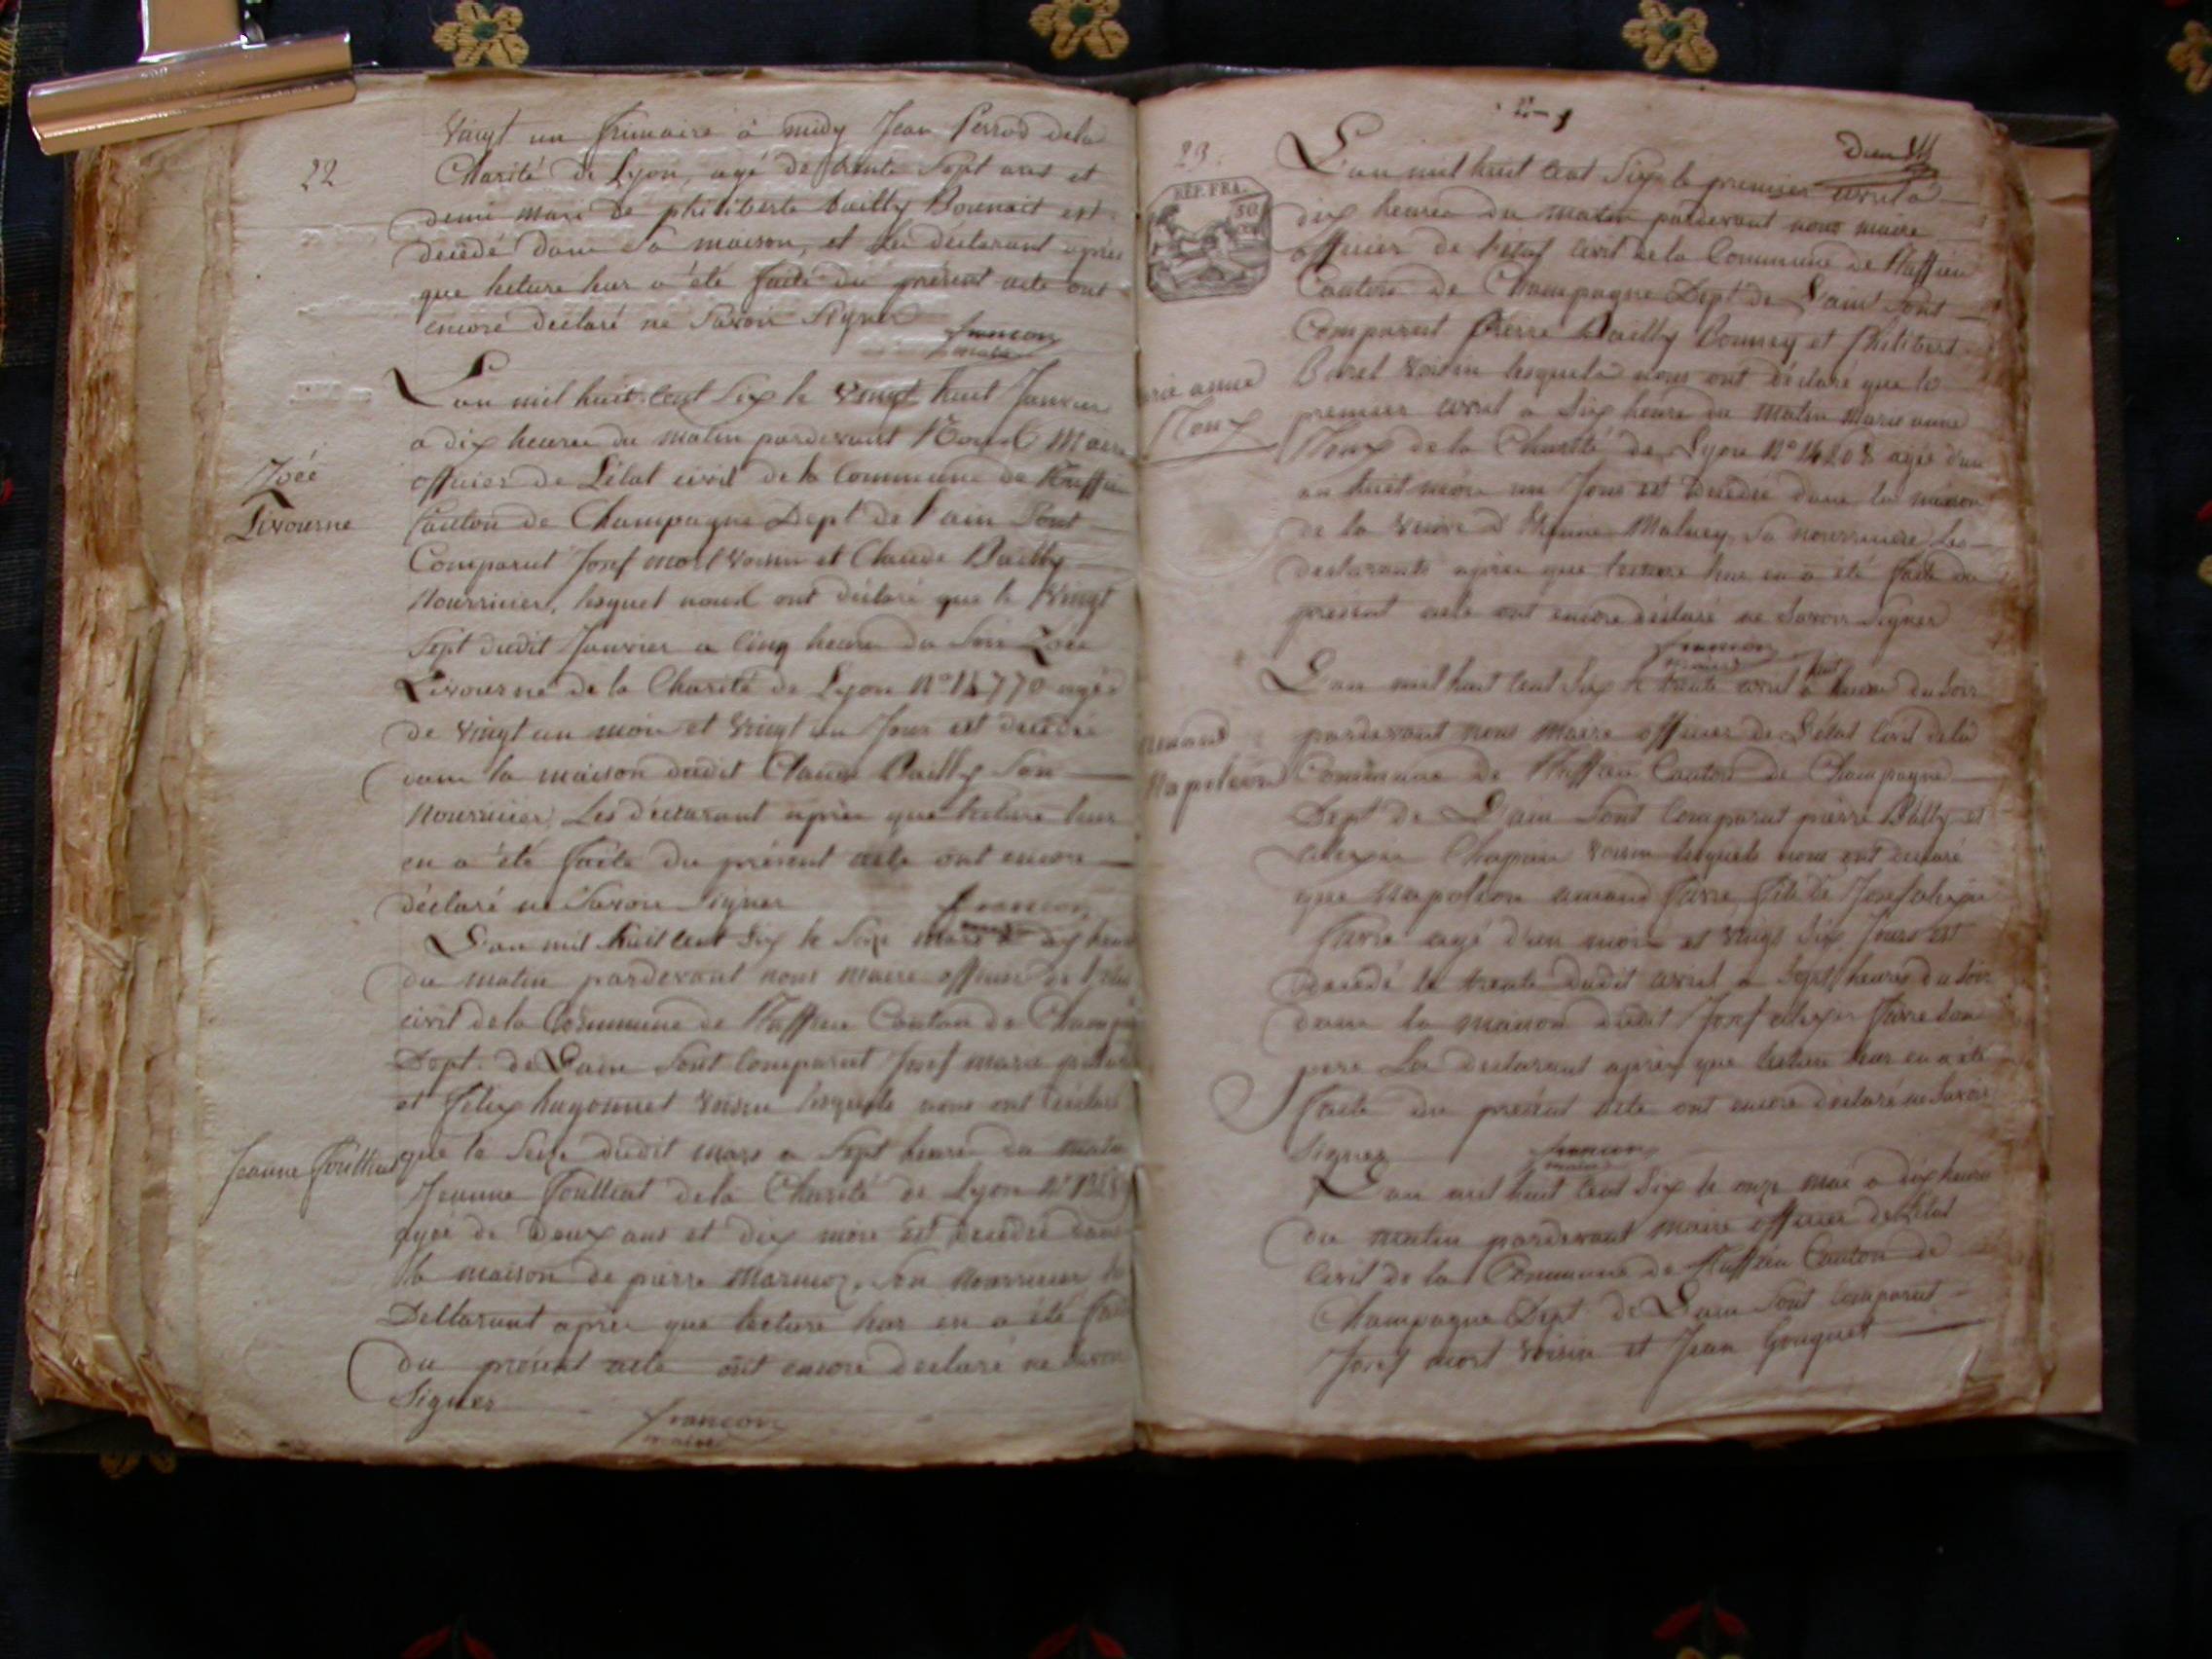 22
vingt un frimaire à midy Jean Perrod dela
Charité de Lyon, agé de trente Sept ans et
demi mari de philiberte bailly Bonnait est
decédé dans Sa maison, et Les déclarant après
que lecture leur a été faite du présent acte ont
encore déclaré ne Savoir Signer
francon
maire
L'an mil huit cent Six le vingt huit Janvier
a dix heures du matin pardevant Nous Maire
officier de L'état civil de la commune de Ruffieu
Canton de Champagne Dept de l'ain Sont
Comparut Josef mort voisin et Claude Bailly
Nourricier, lesquel nous ont déclaré que le vingt
Sept dudit Janvier a cinq heures du Soir Zoée
Livourne de la Charité de Lyon N° 14770 agée
de vingt un mois et vingt un Jour est decédée
dans la maison dudit Claude Bailly Son
Nourricier, Les déclarant après que lecture leur
en a été faite du présent acte ont encore
déclaré ne Savoir Signer
francon
Zoée
Livourne
L'an mil huit cent Six le Seize mars a dix heures
du matin pardevant nous maire officier de l'état
civil dela Commune de Ruffieu Canton de Champagne
Dept. de Lain Sont Comparut Josef marie
et felix hugonnet voisin lesquels nous ont déclaré
que le Seize dudit mars a Sept heures du matin
Jeanne foulliat
Jeanne foulliat dela Charité de Lyon
agée de Deux ans et dix mois est decédée dans
la maison de pierre Marmoz, Son Nourricier les
Déclarant après que lecture leur en a été faite
du présent acte ont encore déclaré ne Savoir
Signer
francon
maire
23.
RÉP. FRA.
50
L'an mil huit cent Six le premier avril a
dix heures du matin pardevant nous maire
officier de l'état civil dela Commune de Ruffieu
Canton de Champagne Dept de L'ain Sont
Comparut Pierre Bailly Bonney et Philibert
Borel voisin lesquels nous ont déclaré que le
premier avril a Six heure du matin Marie anne
de la Charité de Lyon N° 14208 agée d'un
an huit mois un Jour est Decédée dans la maison
de la veuve d'Etienne Malney, Sa nourriciere Les
déclarants après que lecture leur en a été faite du
présent acte ont encore déclaré ne Savoir Signer
francon
maire
L'an mil huit cent Six le trente avril a huit heures du Soir
pardevant nous Maire officier de L'état Civil dela
Commune de Ruffieu Canton de Champagne
Napoleon
Dept de L'ain Sont Comparut pierre Bailly et
Chapuis voisin lesquels nous ont déclaré
que Napoleon amand favre fils de Josef alexis
favre agé d'un mois et vingt Six Jours est
decédé le trente dudit avril a Sept heures du Soir
dans la maison dudit Josef alexis favre Son
pere Les déclarant après que lecture leur en a été
faite du présent acte ont encore déclaré ne Savoir
Signer
francon
maire
L'an mil huit cent Six le onze mai a dix heures
du matin pardevant maire officier de L'état
Civil de la Commune de Ruffieu Canton de
Champagne Dept de Lain Sont Comparut
Josef mort voisin et Jean Gouguet